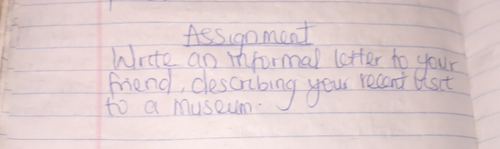 Assignment
Write an informal letter to your
friend, describing your recent visit
to a museum.